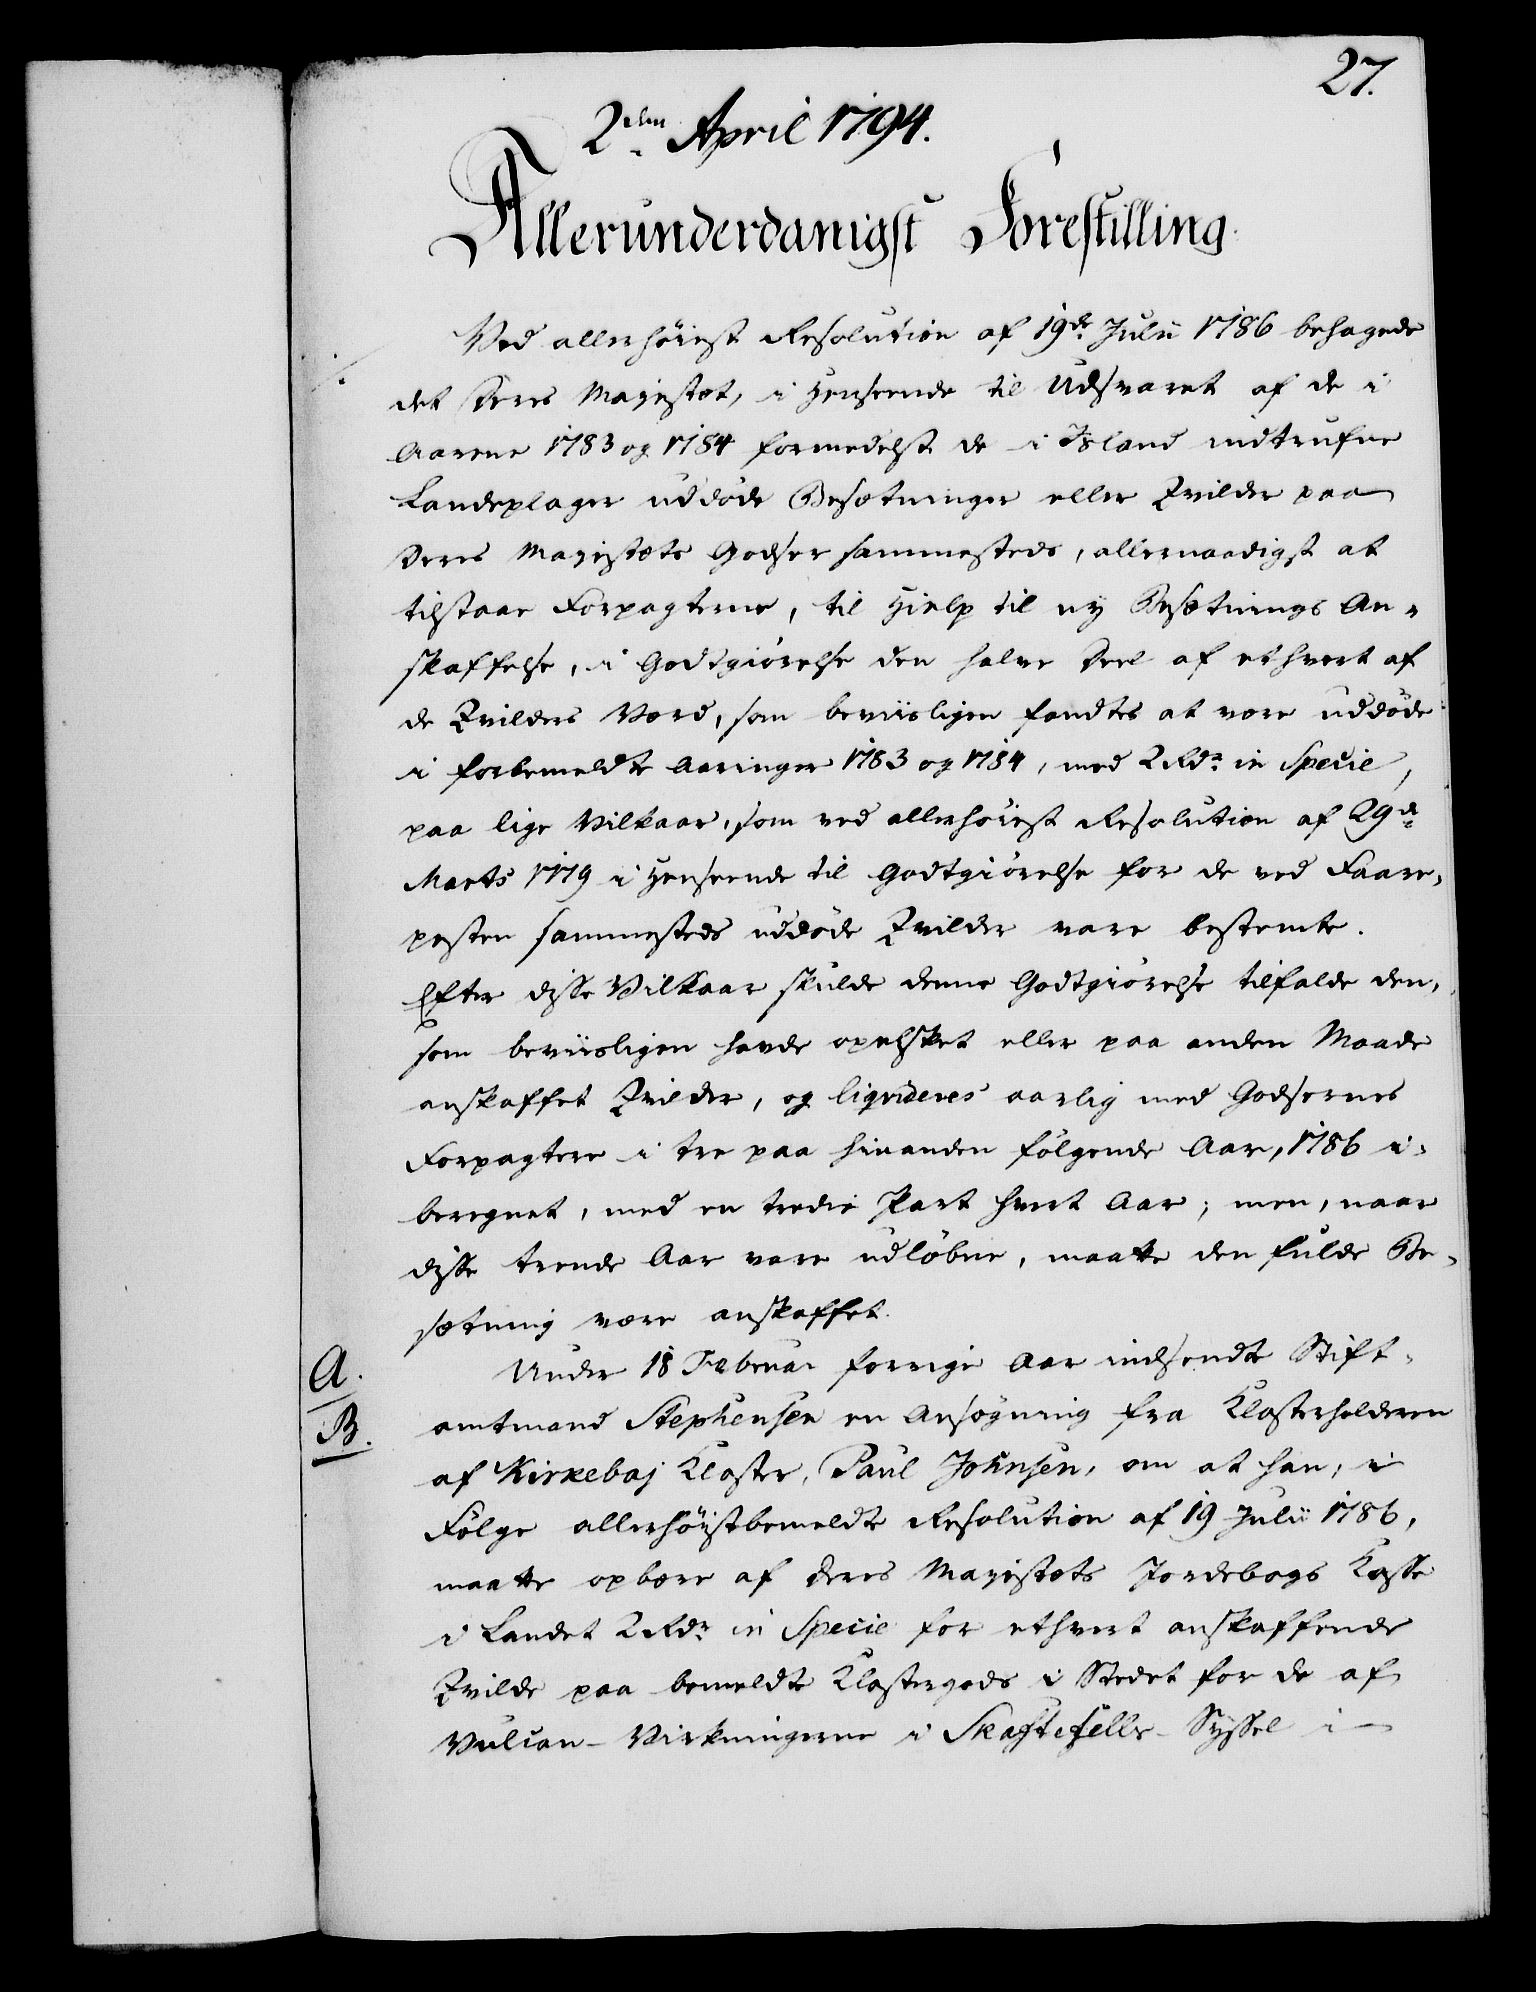 27.
2den April 1794.
Allerunderdanigst Forestilling.
Ved allerhöiest Resolution af 19de Julii 1786 behagede
det Deres Majestæt, i Henseende til Udsvaret af de i
Aarene 1783 og 1784 formedelst de i Island indtrufne
Landeplager uddöde Besætninger eller Qvilder paa
Deres Majestæts Godser sammesteds, allernaadigst at
tilstaae Forpagterne, til Hielp til ny Besætnings An-
skaffelse, i Godtgiörelse den halve Deel af ethvert af
de Qvilders Værd, som beviisligen fandtes at være uddöde
i forbemeldte Aaringer 1783 og 1784, med 2 Rdr. in Specie,
paa lige Vilkaar, som ved allerhöiest Resolution af 29de
Marts 1779 i Henseende til Godtgiörelse for de ved Faare-
pesten sammesteds uddöde Qvilder vare bestemte.
Efter disse Vilkaar skulde denne Godtgiörelse tilfalde den,
som beviisligen havde opelsket eller paa anden Maade
anskaffet Qvilder, og liqvideres aarlig med Godsernes
Forpagtere i tre paa hinanden fölgende Aar, 1786 i-
beregnet, med en tredie Part hvert Aar; men, naar
disse trende Aar vare udlöbne, maatte den fulde Be-
sætning være anskaffet.
A.
B.
Under 18 Februar forrige Aar indsendte Stift-
amtmand Stephensen en Ansögning fra Klosterholderen
af Kirkebaj Kloster, Paul Johnsen, om at han, i
Fölge allerhöistbemeldte Resolution af 19 Julii 1786,
maatte opbære af Deres Majestæts Jordebogs Kasse
i Landet 2 Rdr. in Specie for ethvert anskaffende
Qvilde paa bemeldte Klostergods i Stedet for de af
Vulcan-Virkningerne i Skaftefells-Syssel i